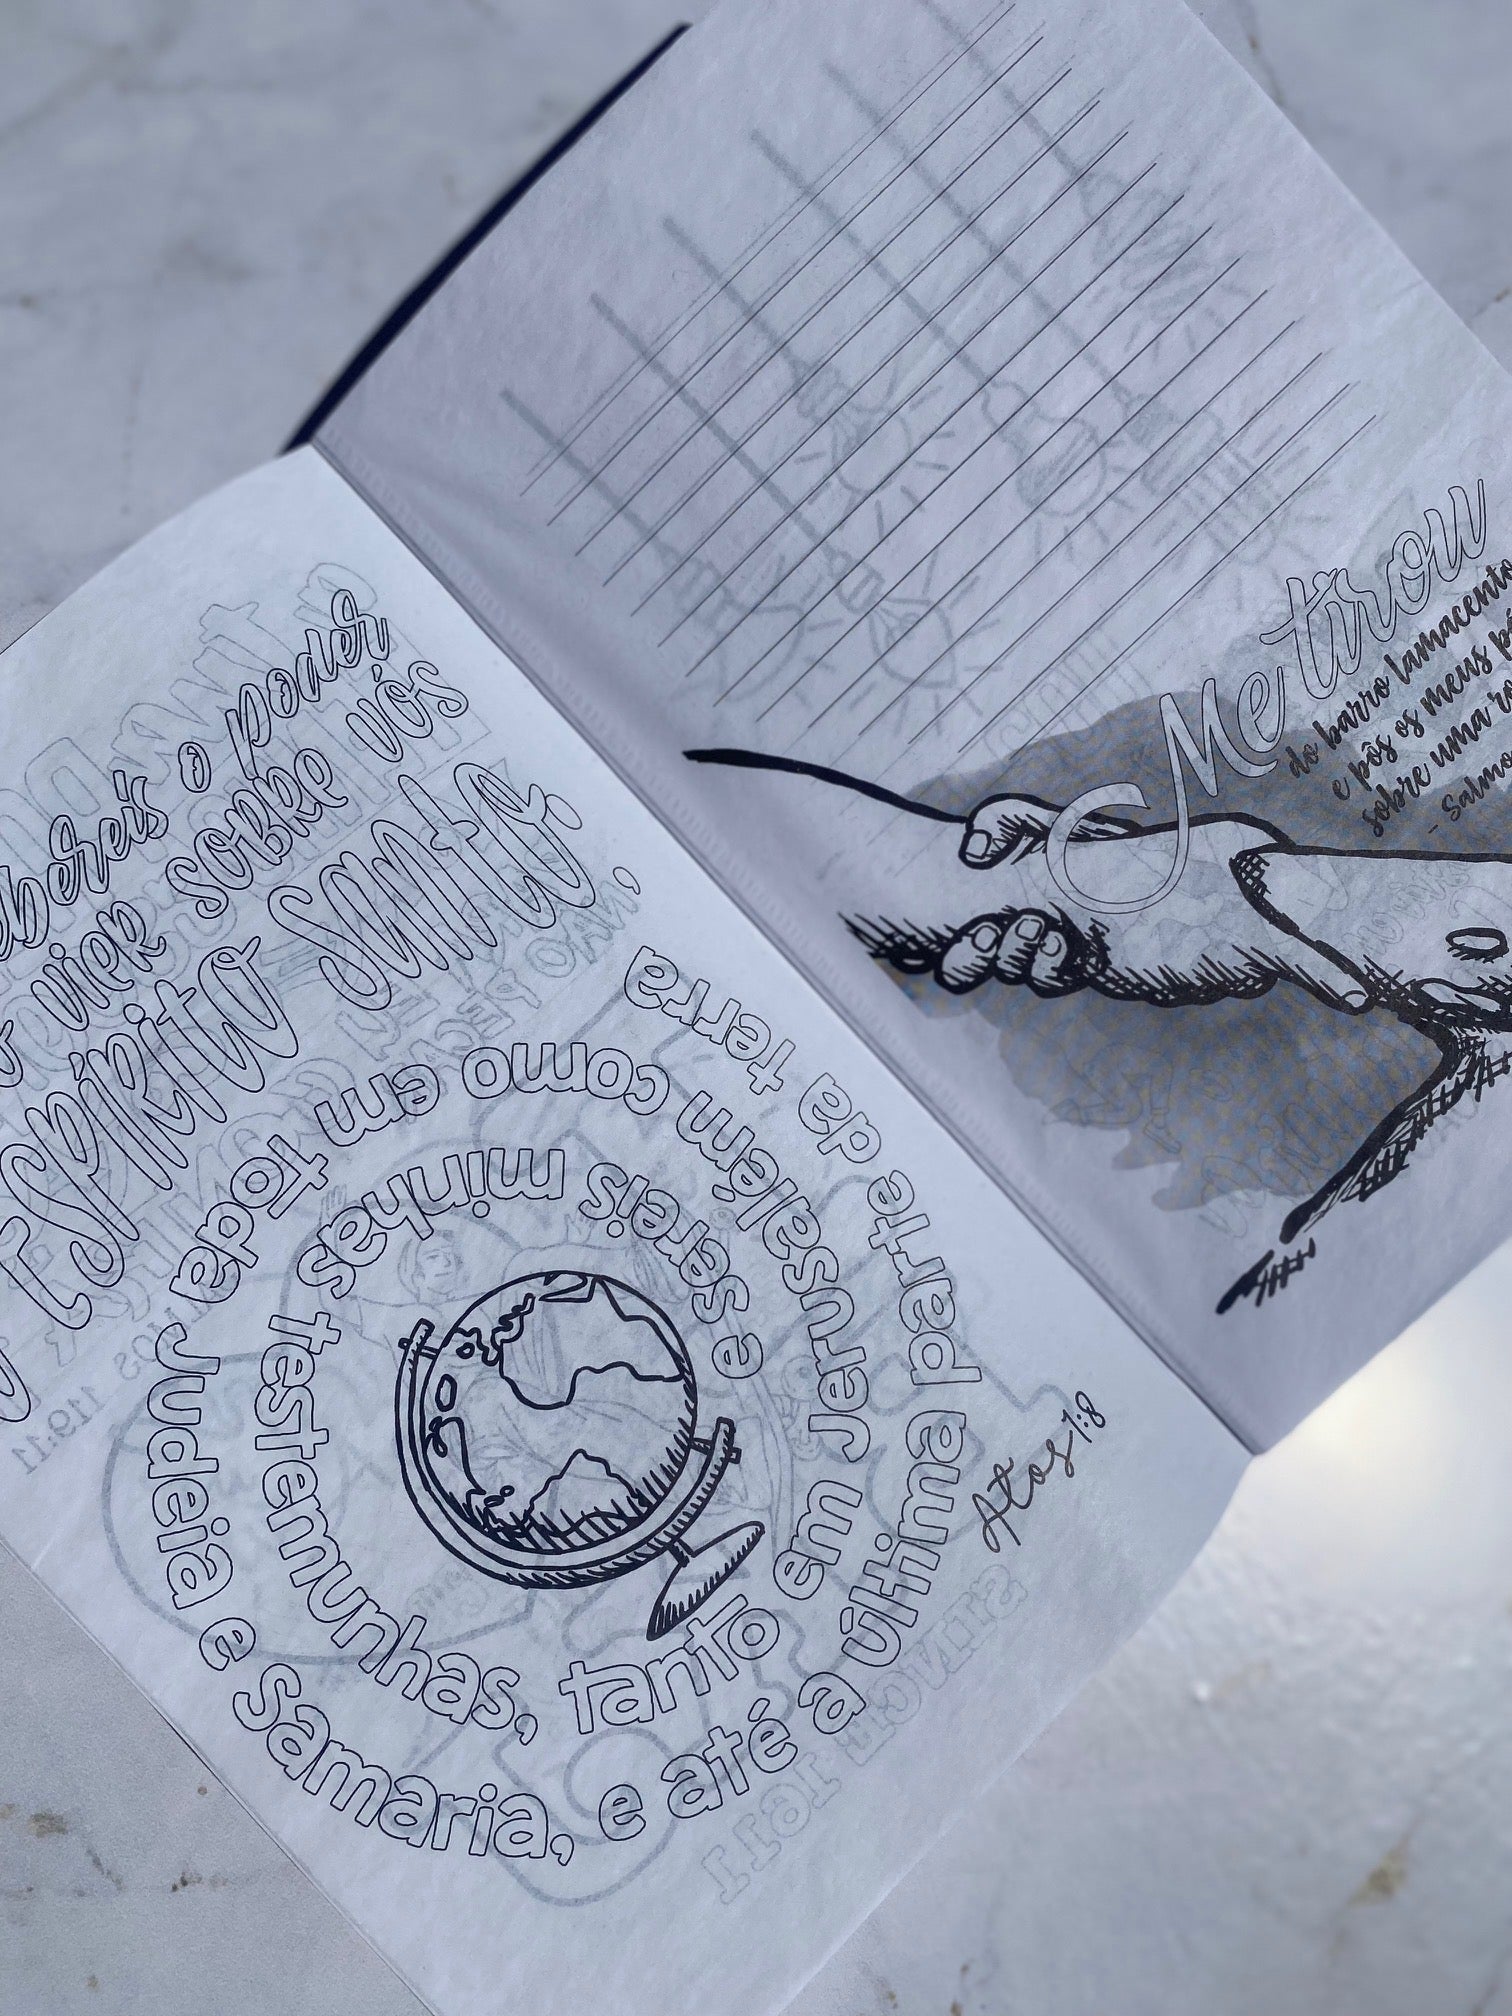 o poder
vier sobre vós
Espírito Santo.
e sereis minhas testemunhas, tanto em Jerusalém como em toda Judeia e Samaria, e até a última parte da terra
Atos 1:8
Me tirou
do barro lamacento
e pôs os meus
sobre uma
- Salmo
119:11